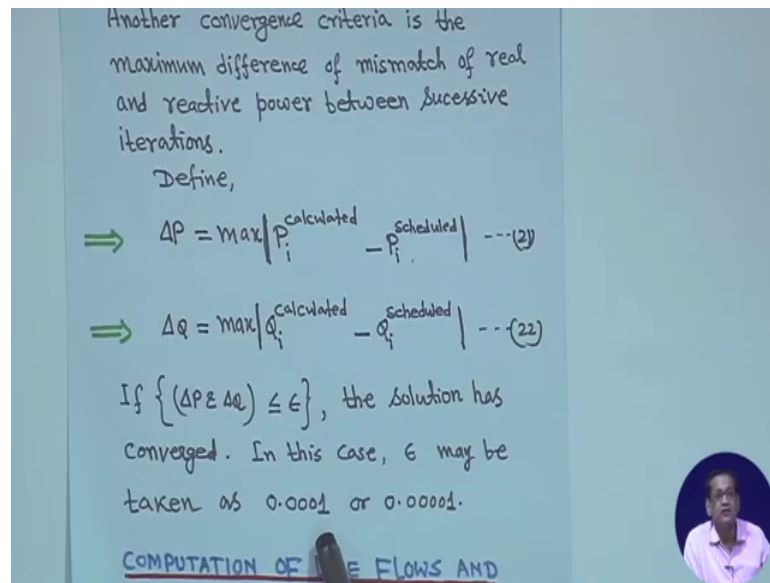 Another convergence criteria is the
maximum difference of mismatch of real
and reactive power between sucessive
iterations.
Define,
⇒ ΔP = max|P_i^calculated - P_i^scheduled| ---(21)
⇒ ΔQ = max|Q_i^calculated - Q_i^scheduled| ---(22)
If {(ΔP & ΔQ) ≤ ϵ}, the solution has
converged. In this case, ϵ may be
taken as 0.0001 or 0.00001.
COMPUTATION OF FLOWS AND